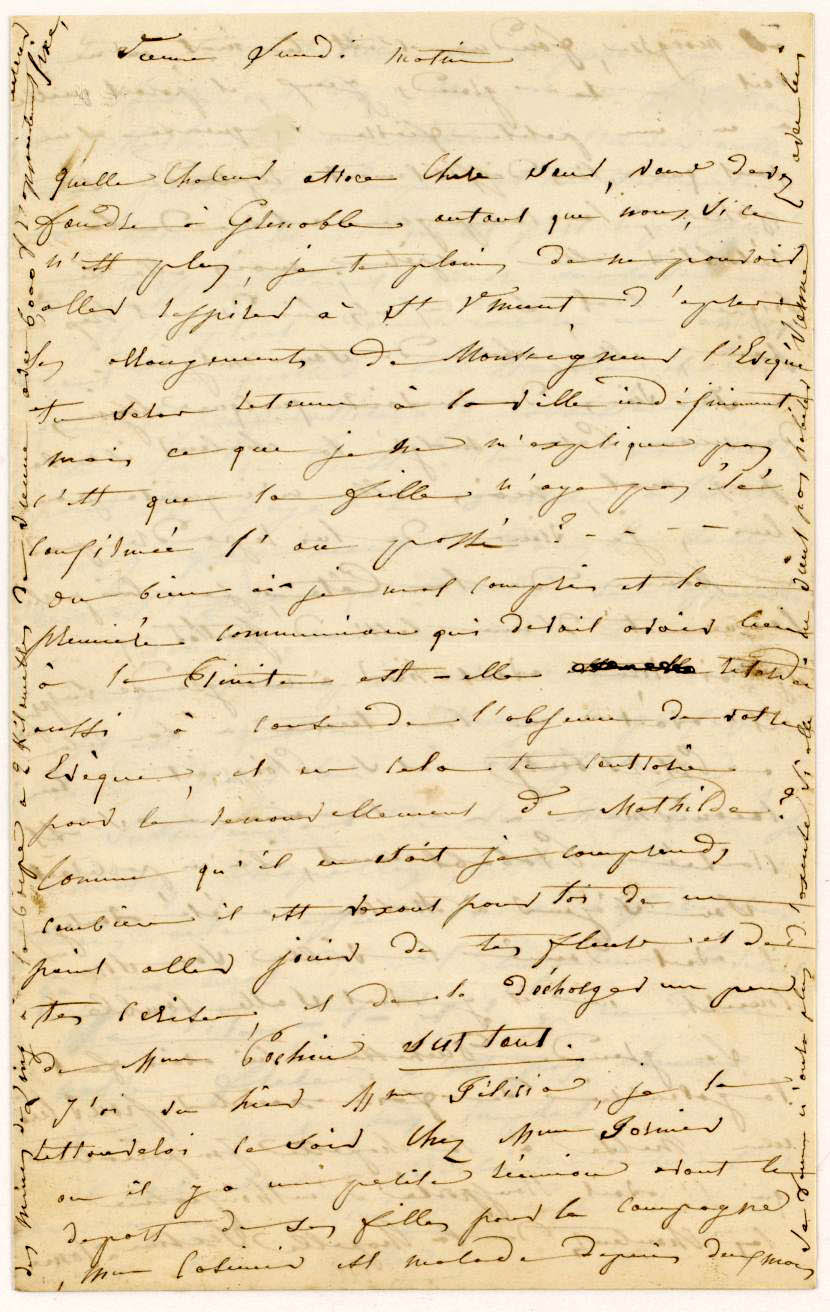 Vienne Lundi matin
quelle chaleur atroce chère sœur, vous devez
fondre à Grenoble autant que nous, si ce
n'est plus, je te plains de ne pouvoir
aller respirer à St Vincent d'après
les arrangements de Monseigneur l'Evêque
tu seras retenue à la ville indéfiniment
mais ce que je ne m'explique pas
c'est que ta fille n'aye pas été
confirmée l'an passé ? - - - -
ou bien ai-je mal compris et la
première communion qui devait avoir lieu
à la Trinité est-elle retardée
aussi à cause de l'absence de votre
Evêque, et en cela te contrarie
pour le renouvellement de Mathilde ?
Comme qu'il en soit je comprends
combien il est vexant pour toi de ne
point aller jouir de tes fleurs et de
tes cerises, et de te décharger un peu
de Mme Cochin surtout.
J'ai vu hier Mme Félicia, je la
retrouverai ce soir chez Mme
ou il y a une petite réunion avant le
depart de ses filles pour la campagne
Mme Casimir est malade depuis deux mois
des mines de à 2 kilomètres de Vienne avec 6000 f d'appointement fixe,
de Vienne n'aura plus d'excuse si elle ne vient pas habiter Vienne avec lui